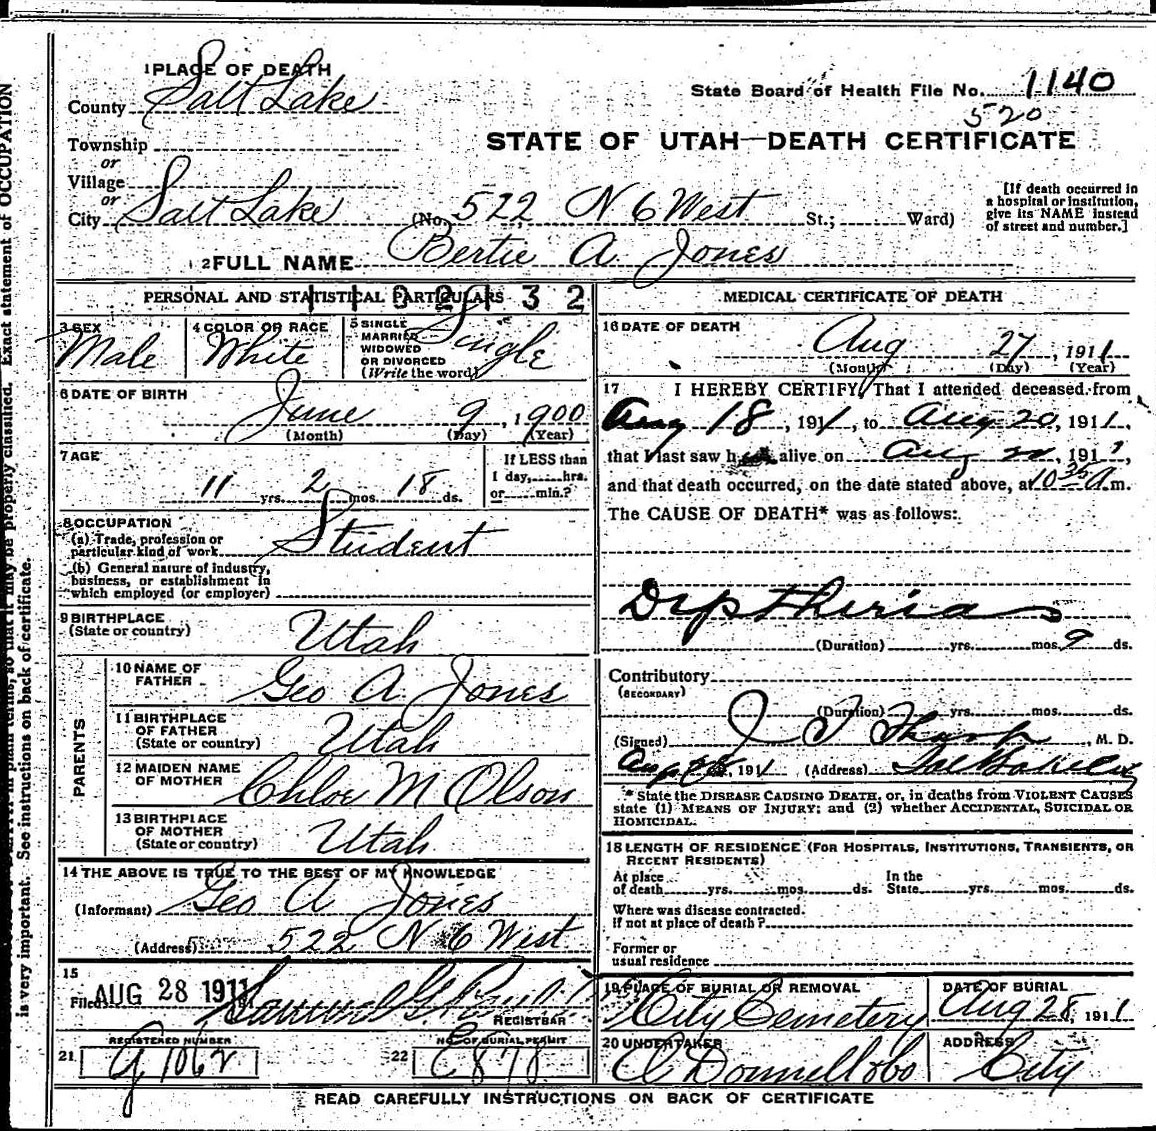 1 PLACE OF DEATH
County Salt Lake
State Board of Health File No. 1140
520
STATE OF UTAH—DEATH CERTIFICATE
Township
or
Village
or
City Salt Lake (No. 522 N 6 West St.; Ward)
[If death occurred in a hospital or institution, give its NAME instead of street and number.]
2 FULL NAME Bertie A. Jones
PERSONAL AND STATISTICAL PARTICULARS
1102132
3 SEX Male
4 COLOR OR RACE White
5 SINGLE MARRIED WIDOWED OR DIVORCED (Write the word) Single
6 DATE OF BIRTH June 9, 1900
(Month) (Day) (Year)
7 AGE 11 yrs. 2 mos. 18 ds.
If LESS than 1 day, hrs. or min.?
8 OCCUPATION
(a) Trade, profession or particular kind of work Student
(b) General nature of industry, business, or establishment in which employed (or employer)
9 BIRTHPLACE (State or country) Utah
PARENTS
10 NAME OF FATHER Geo A. Jones
11 BIRTHPLACE OF FATHER (State or country) Utah
12 MAIDEN NAME OF MOTHER Chloe M Olson
13 BIRTHPLACE OF MOTHER (State or country) Utah
14 THE ABOVE IS TRUE TO THE BEST OF MY KNOWLEDGE
(Informant) Geo A Jones
(Address) 522 N 6 West
15
Filed AUG 28 1911 Samuel G.
REGISTRAR
REGISTERED NUMBER
21 G 1062
NO. OF BURIAL PERMIT
22 C 878
MEDICAL CERTIFICATE OF DEATH
16 DATE OF DEATH Aug 27, 1911
(Month) (Day) (Year)
17 I HEREBY CERTIFY, That I attended deceased from
Aug 18, 1911, to Aug 20, 1911,
that I last saw h alive on Aug 20, 191 ,
and that death occurred, on the date stated above, at 10 35 A.m.
The CAUSE OF DEATH* was as follows:
Diptheria
(Duration) yrs. mos. 9 ds.
Contributory
(SECONDARY)
(Duration) yrs. mos. ds.
(Signed) J T , M. D.
Aug 28, 1911 (Address) Salt Lake City
* State the DISEASE CAUSING DEATH, or, in deaths from VIOLENT CAUSES
state (1) MEANS OF INJURY; and (2) whether ACCIDENTAL, SUICIDAL OR
HOMICIDAL.
18 LENGTH OF RESIDENCE (FOR HOSPITALS, INSTITUTIONS, TRANSIENTS, OR
RECENT RESIDENTS)
At place of death yrs. mos. ds. In the State yrs. mos. ds.
Where was disease contracted.
if not at place of death?
Former or
usual residence
19 PLACE OF BURIAL OR REMOVAL City Cemetery
DATE OF BURIAL Aug 28, 1911
20 UNDERTAKER O Donnell &
ADDRESS City
READ CAREFULLY INSTRUCTIONS ON BACK OF CERTIFICATE
in plain terms, so that it may be properly classified. Exact statement of OCCUPATION
is very important. See instructions on back of certificate.